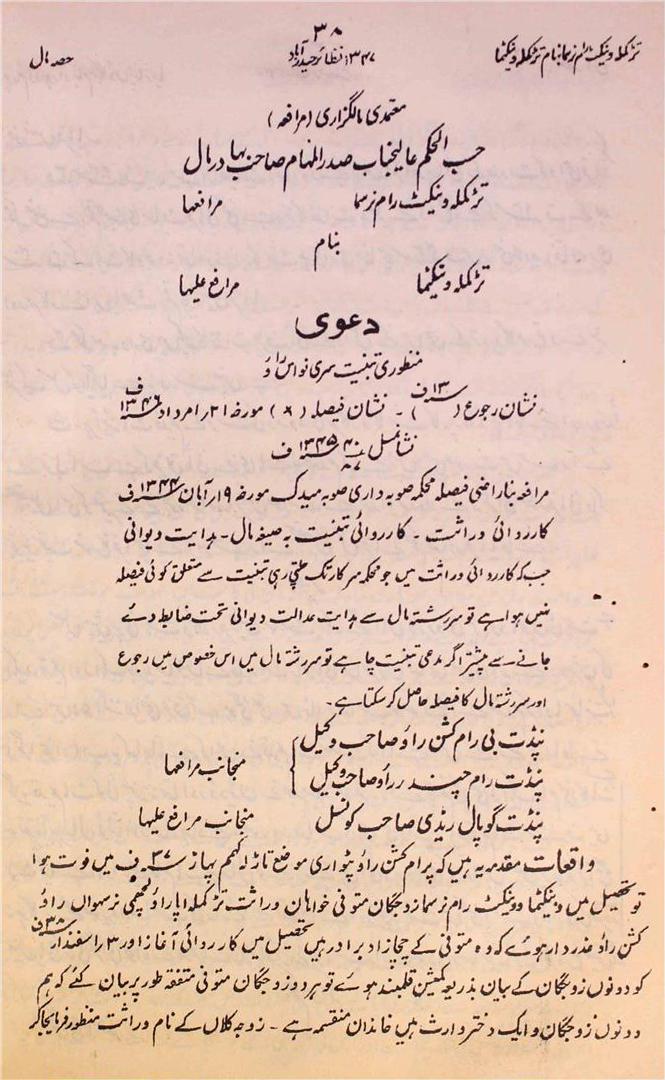 ۳۸
ترکملہ وینکٹ رام نرسما بنام ترکملہ وینکٹما
۱۳۴۷ف نظائر حیدرآباد
حصہ مال
معتمدی مالگزاری (مرافعہ)
حسب الحکم عالیجناب صدر المہام صاحب بہادر مال
ترکملہ وینکٹ رام نرسما مرافعہا
بنام
ترکملہ وینکٹما مرافع علیہا
دعوی
منظوری تبنیت سری نواس راؤ
نشان رجوع ( ۱۳ف ) ۔ نشان فیصلہ (۶) مورخہ ۲۱ امرداد ۱۳۴۶ف
نشان مسل ۴۰/۸۷ ۱۳۴۵ ف
مرافعہ بناراضی فیصلہ محکمہ صوبہ داری صوبہ میدک مورخہ ۱۹ آبان ۱۳۴۴ف
کارروائی وراثت ۔ کارروائی تبنیت بہ صیغہ مال ۔ ہدایت دیوانی
جب کہ کارروائی وراثت میں جو محکمہ سرکار تک چلتی رہی تبنیت سے متعلق کوئی فیصلہ
نہیں ہوا ہے تو سررشتہ مال سے ہدایت عدالت دیوانی تحت ضابطہ دئے
جانے سے پیشتر اگر مدعی تبنیت چاہے تو سررشتہ مال میں اس خصوص میں رجوع
اور سررشتہ مال کا فیصلہ حاصل کرسکتا ہے۔
پنڈت بی رام کشن راؤ صاحب وکیل
پنڈت رام چندر راؤ صاحب وکیل } منجانب مرافعہا
پنڈت گوپال ریڈی صاحب کونسل منجانب مرافع علیہا
واقعات مقدمہ یہ ہیں کہ پرام کشن راؤ پٹواری موضع تاڑلہ کہم پہاڑ ۳۷ف میں فوت ہوا
تو تحصیل میں وینکٹما ووینکٹ رام نرسما زوجگان متوفی خواہان وراثت ترکملہ اپاراؤ لچھمی نرسہواں راؤ
کشن راؤ عذردار ہوئے کہ وہ متوفی کے چچازاد برادر ہیں تحصیل میں کارروائی آغاز اور ۳ اسفندار ۳۸ف
کو دونوں زوجگان کے بیان بذریعہ کمیشن قلمبند ہوئے تو ہر دو زوجگان متوفی متفقہ طور پر بیان کئے کہ ہم
دونوں زوجگان و ایک دختر وارث ہیں خاندان منقسمہ ہے۔ زوجہ کلاں کے نام وراثت منظور فرمایا جاکر